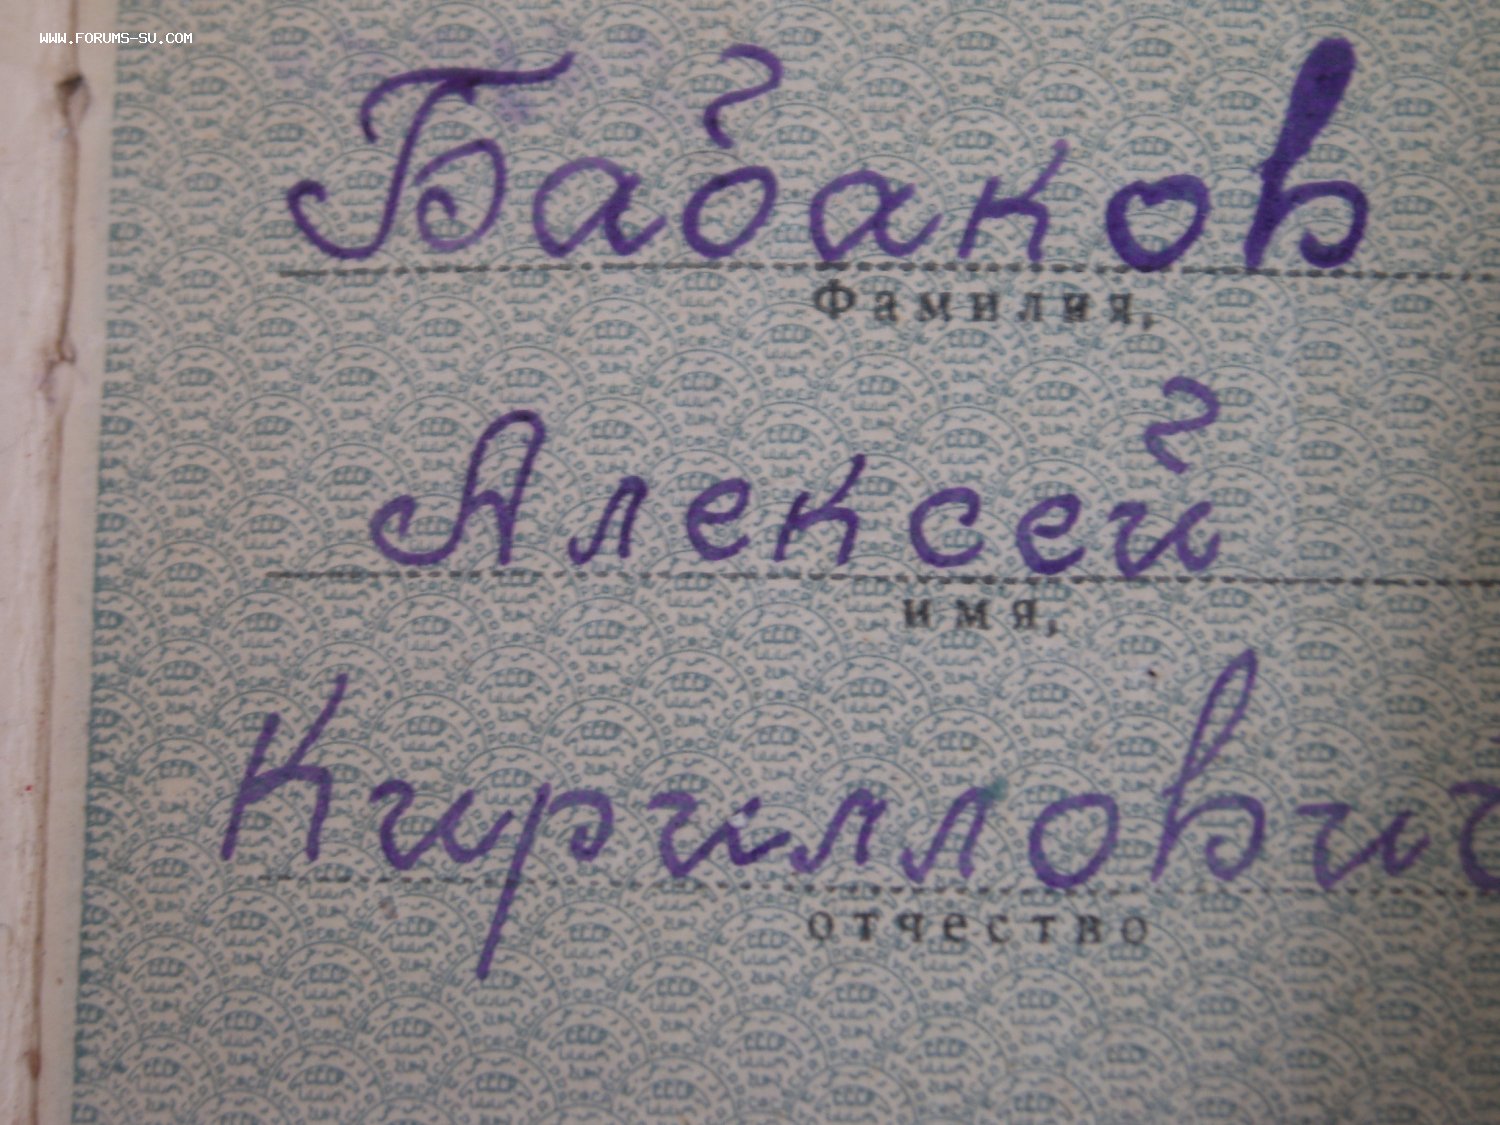 WWW.FORUMS-SU.COM
Бабаков
Фамилия,
Алексей
имя,
Кириллович
отчество